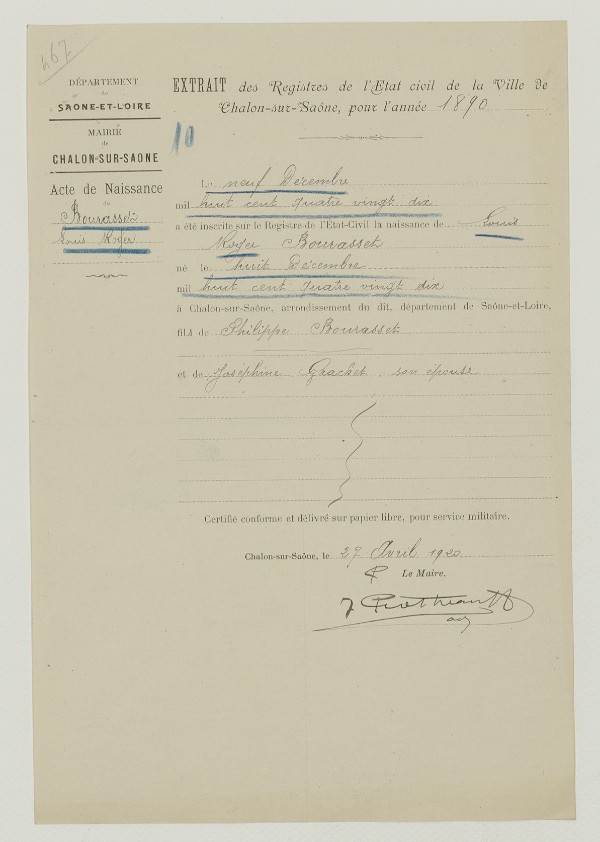 467
DÉPARTEMENT
de
SAÔNE-ET-LOIRE
MAIRIE
de
CHALON-SUR-SAÔNE
Acte de Naissance
Bourasset
Louis Roger
EXTRAIT des Registres de l'Etat civil de la Ville de
Chalon-sur-Saône, pour l'année 1890
10
Le neuf Décembre
mil huit cent quatre vingt dix
a été inscrite sur le Registre de l'Etat-Civil la naissance de Louis
Roger Bourasset
né le huit Décembre
mil huit cent quatre vingt dix
à Chalon-sur-Saône, arrondissement du dit, département de Saône-et-Loire,
fils de Philippe Bourasset
et de Joséphine Grachet, son épouse
Certifié conforme et délivré sur papier libre, pour service militaire.
Chalon-sur-Saône, le 27 Avril 1920
Le Maire,